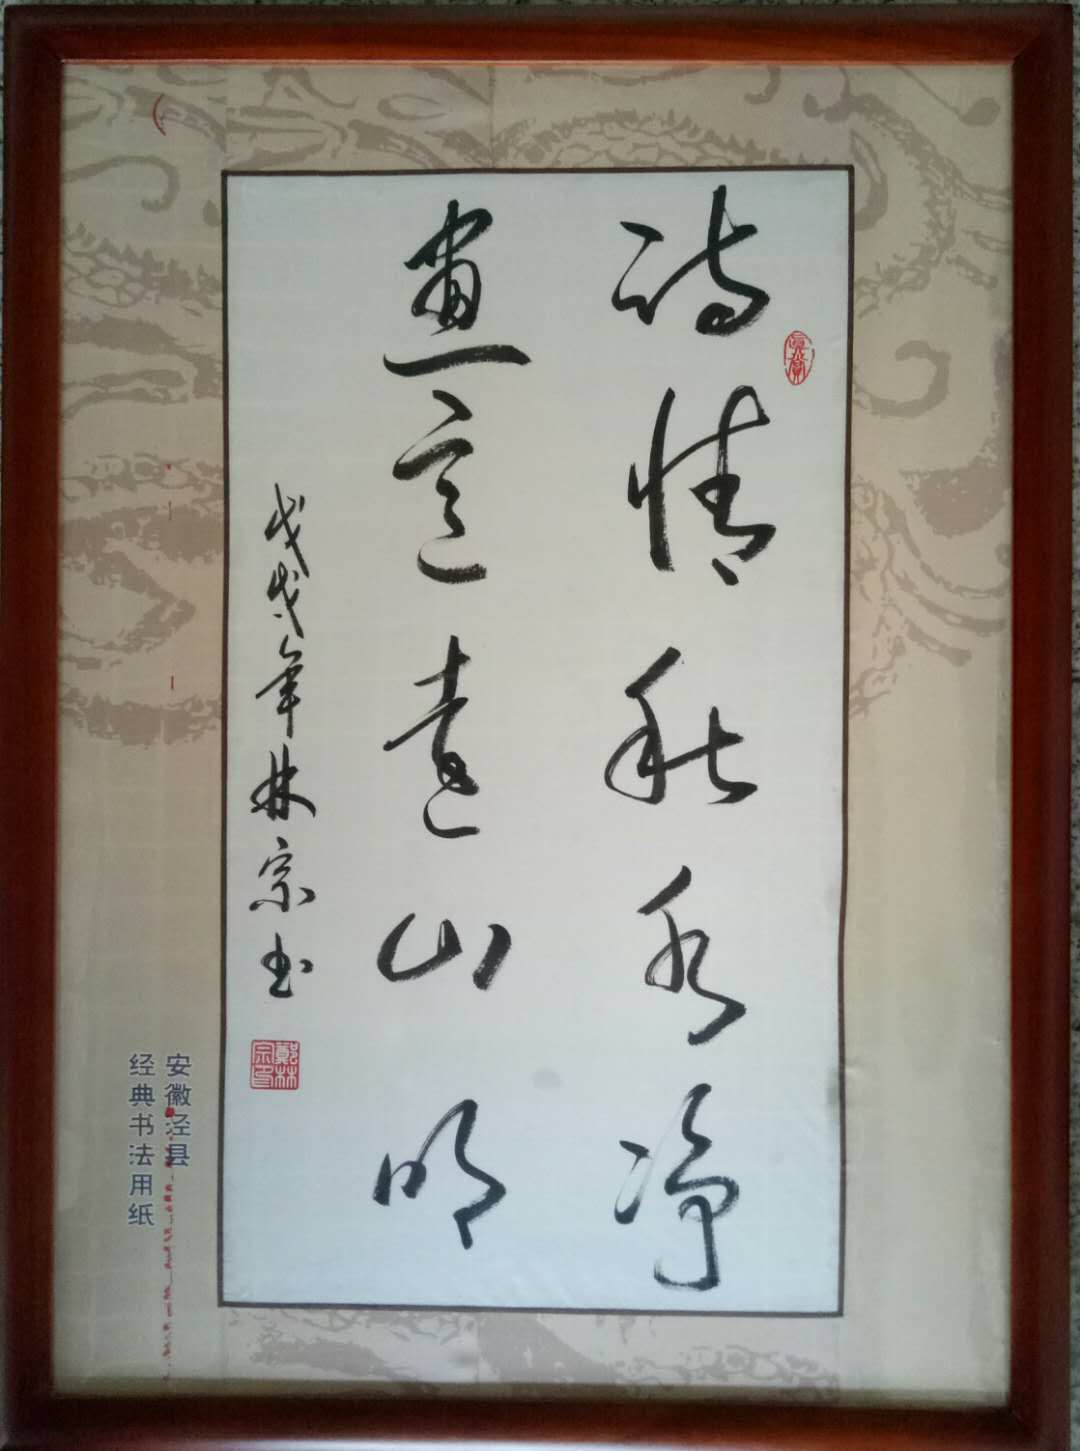 诗情秋水净
畫意遠山明
戊戌年林宗书
鄭林宗印
安徽泾县
经典书法用纸